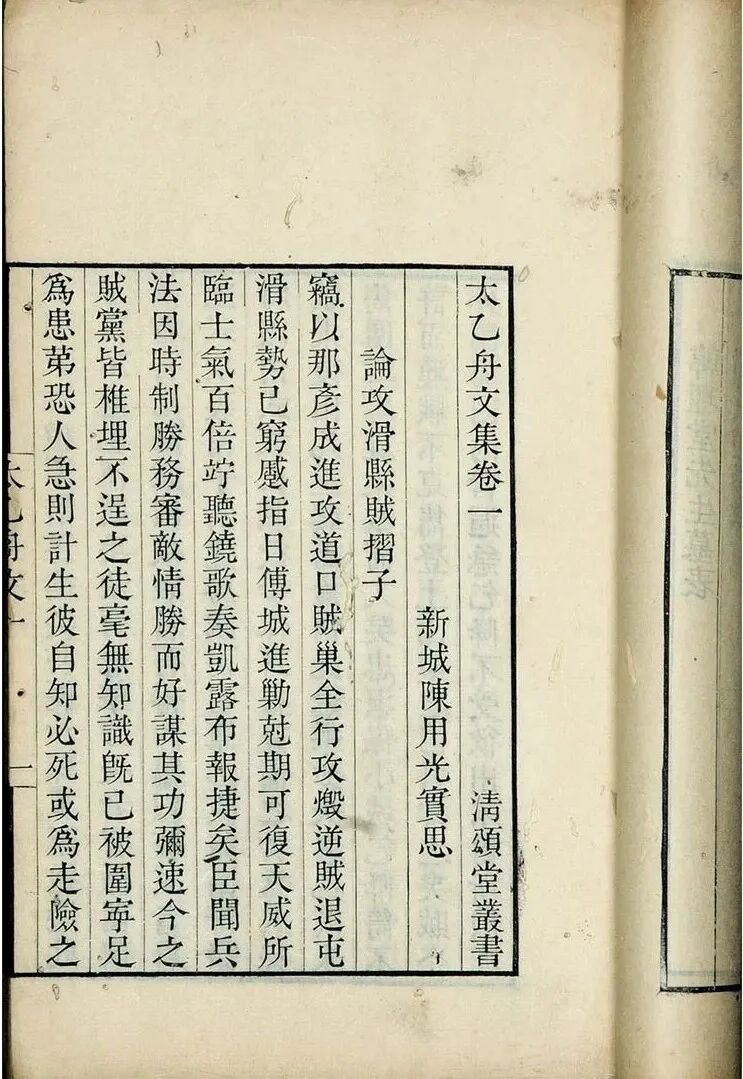 太乙舟文集卷一　清頌堂叢書
新城陳用光實思
論攻滑縣賊摺子
竊以那彥成進攻道口賊巢全行攻燬逆賊退屯
滑縣勢已窮蹙指日傅城進勦尅期可復天威所
臨士氣百倍竚聽鐃歌奏凱露布報捷矣臣聞兵
法因時制勝務審敵情勝而好謀其功彌速今之
賊黨皆椎埋不逞之徒毫無知識旣已被圍寧足
爲患第恐人急則計生彼自知必死或爲走險之
太乙舟文
一